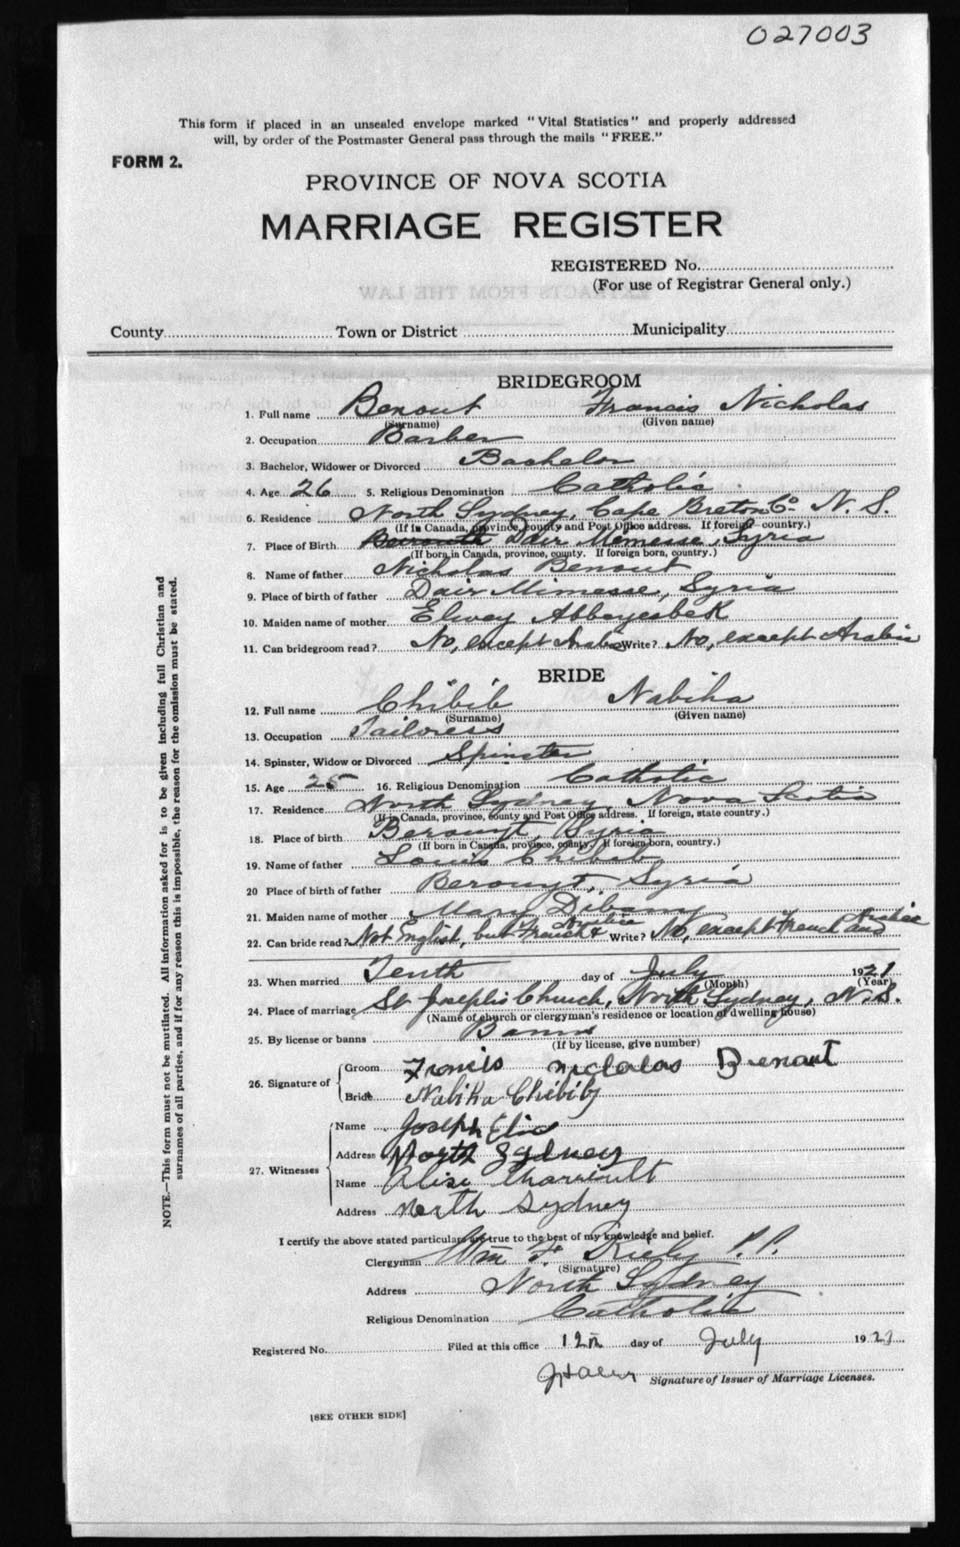 027003
This form if placed in an unsealed envelope marked "Vital Statistics" and properly addressed
will, by order of the Postmaster General pass through the mails "FREE."
FORM 2.
PROVINCE OF NOVA SCOTIA
MARRIAGE REGISTER
REGISTERED No.
(For use of Registrar General only.)
County Town or District Municipality
BRIDEGROOM
1. Full name Benout Francis Nicholas
(Surname) (Given name)
2. Occupation Barber
3. Bachelor, Widower or Divorced Bachelor
4. Age 26 5. Religious Denomination Catholic
6. Residence North Sydney, Cape Breton Co. N. S.
(If in Canada, province, county and Post Office address. If foreign country.)
7. Place of Birth Dair Memesse, Syria
(If born in Canada, province, county. If foreign born, country.)
8. Name of father Nicholas Benout
9. Place of birth of father Dair Mimesse, Syria
10. Maiden name of mother Elwey Abbeyesbek
11. Can bridegroom read? No, except Arabic Write? No, except Arabic
BRIDE
12. Full name Chibib Nabiha
(Surname) (Given name)
13. Occupation Tailoress
14. Spinster, Widow or Divorced Spinster
15. Age 25 16. Religious Denomination Catholic
17. Residence North Sydney, Nova Scotia
(If in Canada, province, county and Post Office address. If foreign, state country.)
18. Place of birth Berouyt, Syria
(If born in Canada, province, county. If foreign born, country.)
19. Name of father Louis Chibib
20 Place of birth of father Berouyt, Syria
21. Maiden name of mother Mary Dibany
22. Can bride read? Not English, but French & Write? No, except French and
23. When married Tenth day of July 1921
(Month) (Year)
24. Place of marriage St. Joseph's Church, North Sydney, N.S.
(Name of church or clergyman's residence or location of dwelling house)
25. By license or banns Banns
(If by license, give number)
26. Signature of Groom Francis nicholas Benout
Bride Nabiha Chibib
27. Witnesses Name Joseph Elie
Address North Sydney
Name Alise
Address North Sydney
I certify the above stated particulars are true to the best of my knowledge and belief.
Clergyman Wm F. Kiely P.P.
(Signature)
Address North Sydney
Religious Denomination Catholic
Registered No. Filed at this office 12th day of July 1921
Signature of Issuer of Marriage Licenses.
[SEE OTHER SIDE]
NOTE.—This form must not be mutilated. All information asked for is to be given including full Christian and
surnames of all parties, and if for any reason this is impossible, the reason for the omission must be stated.